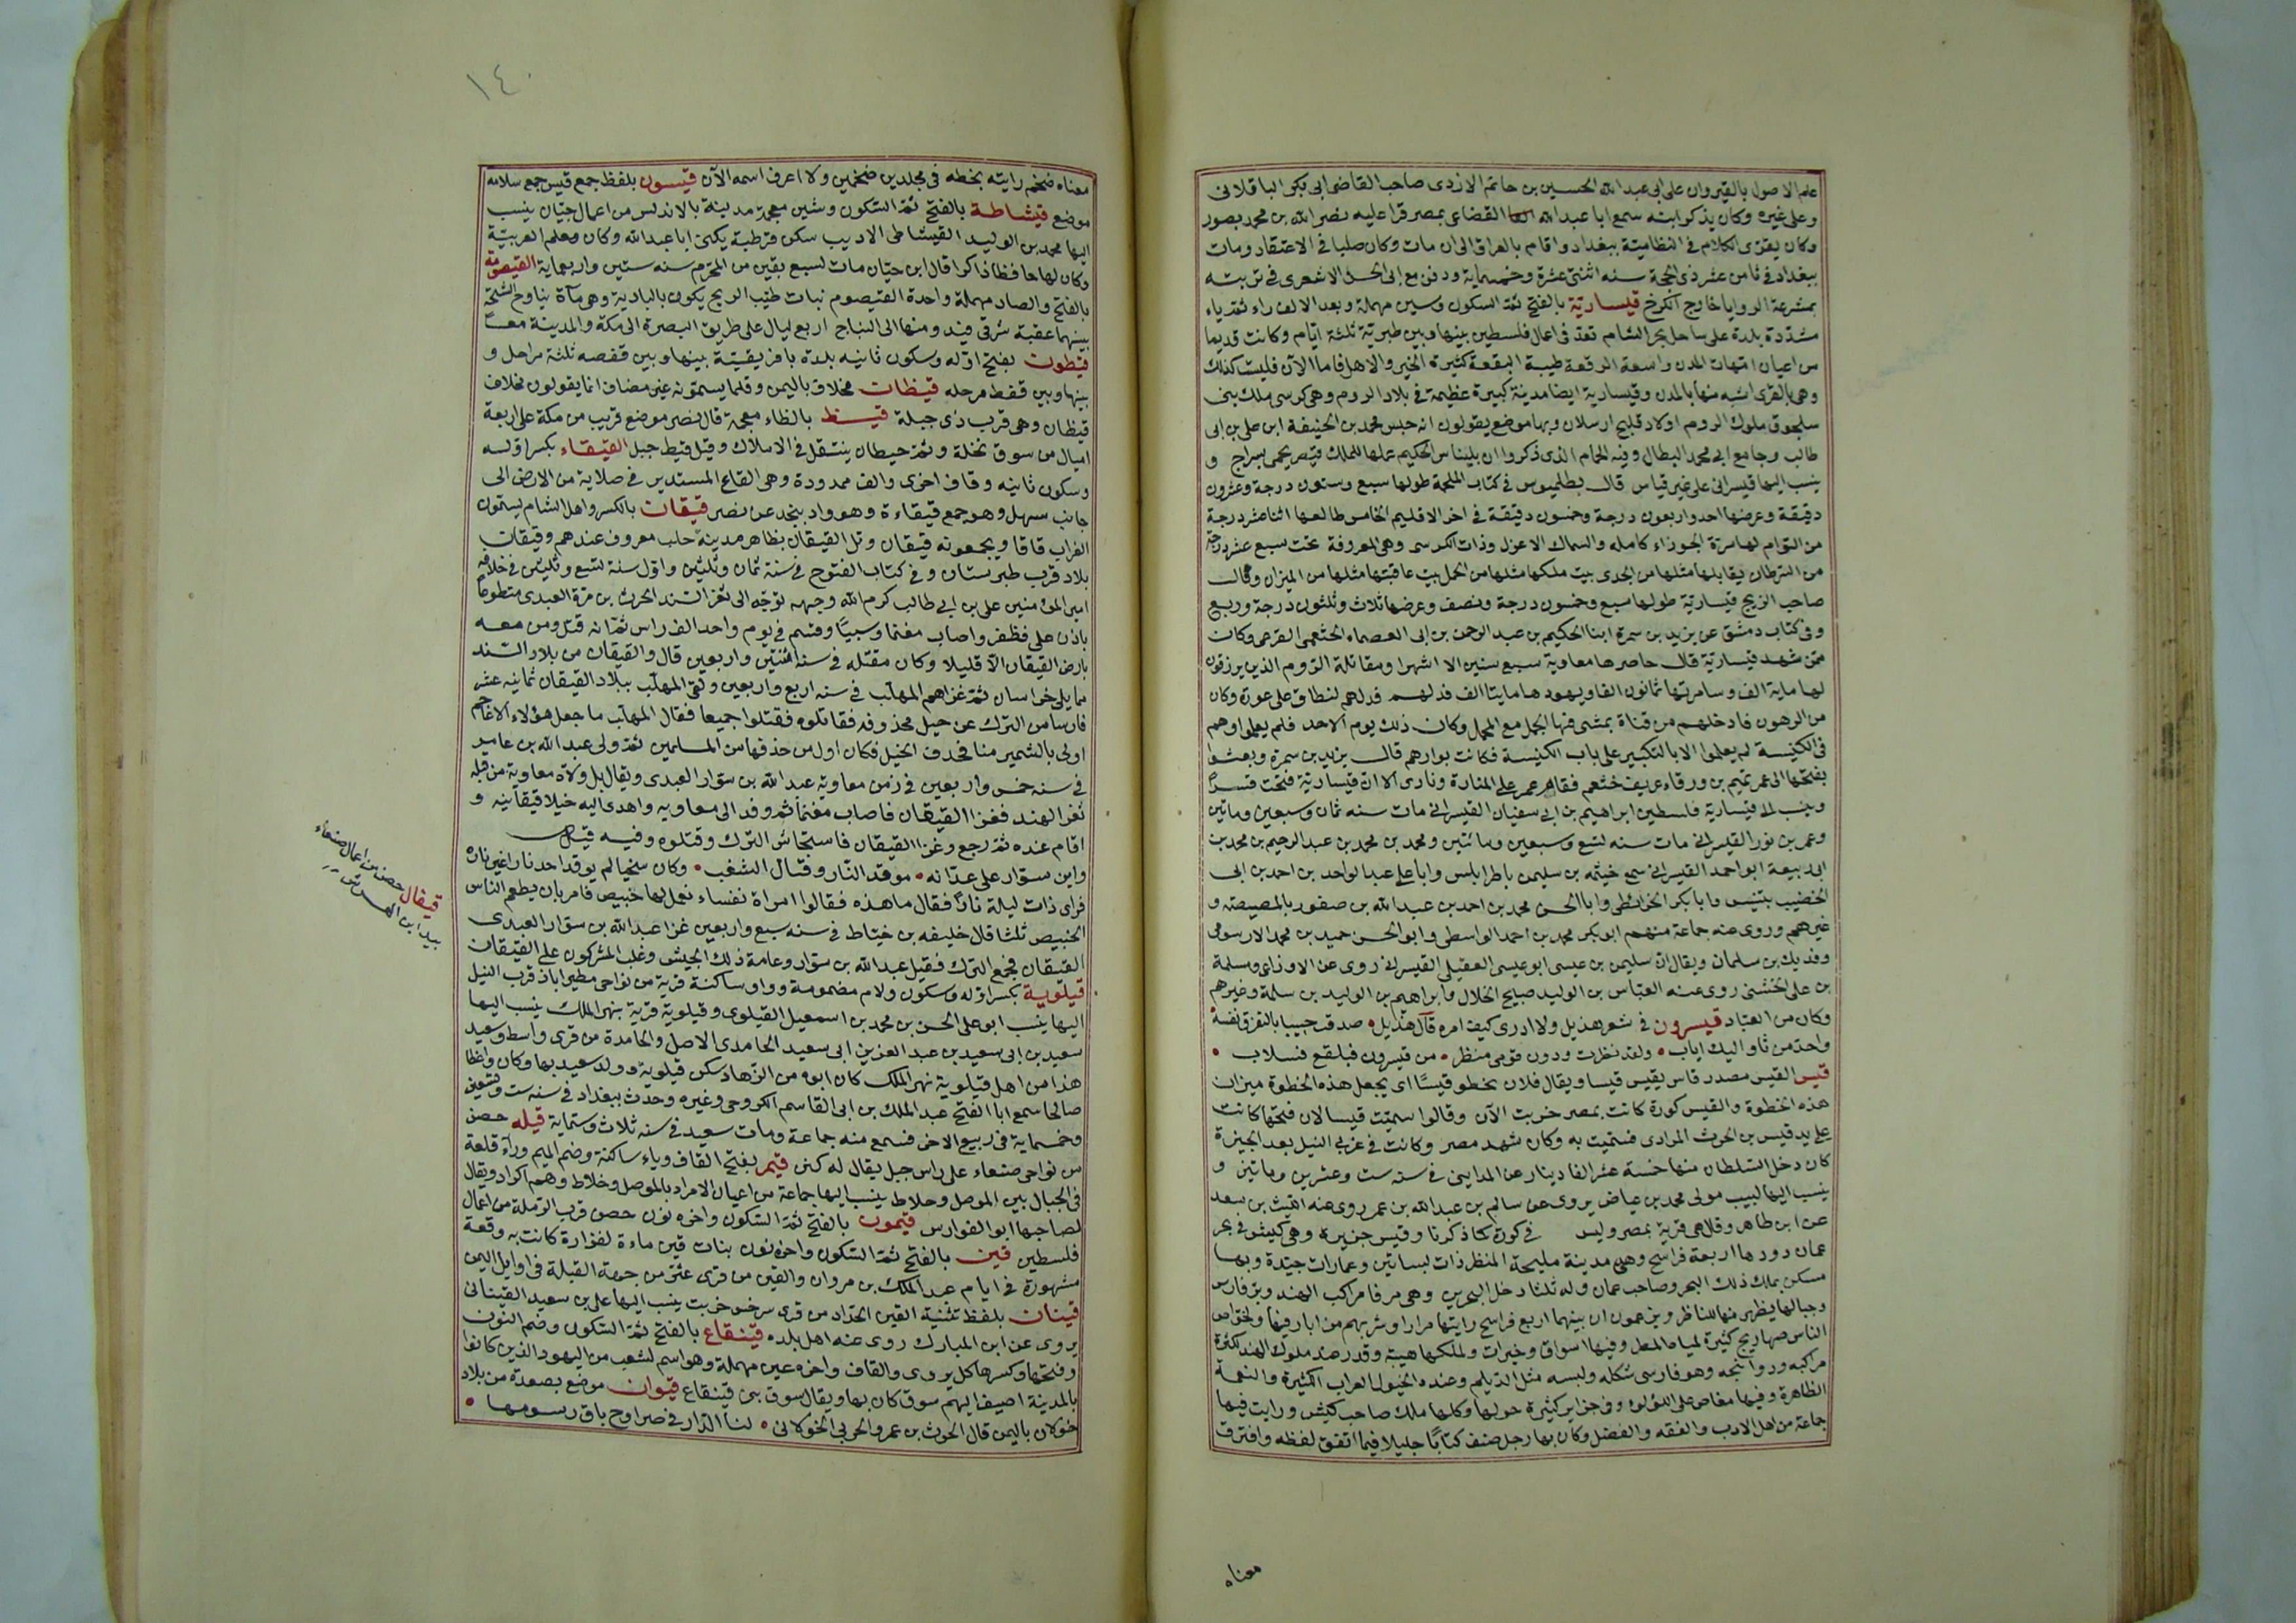 علم الاصول بالقيروان على ابى عبد الله الحسين بن حاتم الازدى صاحب القاضى ابى بكر الباقلانى
وعلى غيره وكان يذكر انه سمع ابا عبد الله القضاعى بمصر قرا عليه نصر الله بن محمد بصور
وكان يقرى الكلام فى النظامية ببغداد واقام بالعراق الى ان مات وكان صلبا فى الاعتقاد ومات
ببغداد فى ثامن عشر ذى الحجة سنه اثنتى عشرة وخمسماية ودفن مع ابى الحسن الاشعرى فى تربته
بمشرعة الروايا خارج الكرخ قيسارية بالفتح ثم السكون وسين مهملة وبعد الالف راء ثم ياء
مشددة بلدة على ساحل بحر الشام تعد فى اعمال فلسطين بينها وبين طبرية ثلثة ايام وكانت قديما
من اعيان امهات المدن واسعة الرقعة طيبة البقعة كثيرة الخير والاهل فاما الآن فليست كذلك
وهى بالقرى اشبه منها بالمدن وقيسارية ايضا مدينة كبيرة عظيمة فى بلاد الروم وهى كرسى ملك بنى
سلجوق ملوك الروم اولاد قليج ارسلان وبها موضع يقولون انه حبس محمد بن الحنيفة ابن على بن ابى
طالب وجامع ابى محمد البطال وفيه الحمام الذى ذكروا ان بليناس الحكيم عملها للملك قيصر يحمى بسراج و
ينسب اليها قيسرانى على غير قياس قال بطليموس فى كتاب الملحمة طولها سبع وستون درجة وعشرون
دقيقة وعرضها احد واربعون درجة وخمسون دقيقة فى اخر الاقليم الخامس طالعها اثنا عشر درجة
من التوام لها سرة الجوزاء كامله والسماك الاعزل وذات الكرسى وهى المعروفة تحت سبع عشر درجة
من السرطان يقابلها مثلها من الجدى بيت ملكها مثلها من الحمل بيت عاقبتها مثلها من الميزان وقال
صاحب الزيج قيسارية طولها سبع وخمسون درجة ونصف وعرضها ثلاث وثلثون درجة وربع
وفى كتاب دمشق عن يزيد بن سمرة ابنا الحكيم بن عبد الرحمن بن ابى العصماء الخثعمى الفرعى وكان
ممن شهد قيسارية قال حاصرها معاوية سبع سنين الا اشهرا ومقاتلة الروم الذين يرزقون
لها ماية الف وسامرتها ثمانون الفا ويهودها مايتا الف فدلهم لنطاق على عورة وكان
من الرهون فادخلهم من قناة يمشى فيها الجمل مع المحمل وكان ذلك يوم الاحد فلم يعلموا وهم
فى الكنيسة لم يعلموا الا بالتكبير على باب الكنيسة فكانت بوارهم قال يزيد بن سمرة وبعثوا
بفتحها الى عمر تميم بن ورقاء عريف خثعم فقام عمر على المنارة ونادى الا ان قيسارية فتحت قسرا
وينسب الى قيسارية فلسطين ابراهيم بن ابى سفيان القيسرانى مات سنه ثمان وسبعين ومائتين
وعمر بن ثور القيسرانى مات سنه تسع وسبعين ومائتين ومحمد بن محمد بن عبد الرحيم بن محمد بن
ابى ربيعة ابو احمد القيسرانى سمع خيثمه بن سليمن باطرابلس وابا على عبد الواحد بن احمد بن ابى
الخصيب بتنيس وابا بكر الخرائطى وابا الحسن محمد بن احمد بن عبد الله بن صفور بالمصيصة و
غيرهم وروى عنه جماعة منهم ابو بكر محمد بن احمد الواسطى وابو الحسن حميد بن محمد الارسوفى
وفديك بن سلمان ويقال ابن سليمن بن عيسى ابو عيسى العقيلى القيسرانى روى عن الاوزاعى ومسلمة
بن على الخشنى روى عنه العباس بن الوليد صبيح الخلال وابراهيم بن الوليد بن سلمة وغيرهم
وكان من العباد قيسرون فى شعر هذيل ولا ادرى كيف امره قال هذيل صدقت حبيبا بالتفرق نفسه
واحد من ثاو اليك اياب ولقد نظرت ودون قومى منظر من قيسرون فبلقع فسلاب
قيس القيس مصدر قاس يقيس قيسا ويقال فلان يخطو قيسا اى يجعل هذه الخطوة ميزان
هذه الخطوة والقيس كورة كانت بمصر خربت الآن وقالوا سميت قيسا لان فتحها كانت
على يد قيس بن الحرث المرادى فسميت به وكان شهد مصر وكانت فى غربى النيل بعد الجيزة
كان دخل السلطان منها خمسة عشر الفا دينار عن المداينى فى سنه ست وعشرين ومائتين و
ينسب اليها لبيب مولى محمد بن عياض يروى عن سالم بن عبد الله بن عمر روى عنه الليث بن سعد
عن ابن طاهر وقال هى قرية بمصر وليس فى كورة كما ذكرنا وقيس جزيرة وهى كيش فى بحر
عمان دورها اربعة فراسخ وهى مدينة مليحة المنظر ذات بساتين وعمارات جيدة وبها
مسكن بملك ذلك البحر وصاحب عمان وله ثلثا دخل البحرين وهى مرفا مراكب الهند وبر فارس
وجبالها يظهر منها للناظر ويزعمون ان بينهما اربع فراسخ رايتها مرارا وشربهم من ابار فيها ولخواص
الناس صهاريج كثيرة لمياه المطر وفيها اسواق وخيرات ولملكها هيبة وقدر عند ملوك الهند لكثرة
مراكبه ودوانجه وهو فارسى شكله ولبسه مثل الديلم وعنده الخيول العراب الكثيرة والنعمة
الظاهرة وفيها مغاص على اللؤلؤ وفى جزاير كثيرة حولها وكلها ملك صاحب كيش ورايت فيها
جماعة من اهل الادب والفقه والفضل وكان بها رجل صنف كتابا جليلا فيما اتفق لفظه وافترق
معناه
١٤٠
معناه ضخم رايته بخطه فى مجلدين ضخمين ولا اعرف اسمه الآن قيسون بلفظ جمع قيس جمع سلامه
موضع قيشاطة بالفتح ثم السكون وشين معجمة مدينة بالاندلس من اعمال جيان ينسب
اليها محمد بن الوليد القيشاطى الاديب سكن قرطبة يكنى ابا عبد الله وكان معلم العربية
وكان لها حافظا ذاكرا قال ابن حيان مات لسبع بقين من المحرم سنه ستين واربعماية القيصومة
بالفتح والصاد مهملة واحدة القيصوم نبات طيب الريح يكون بالبادية وهى مآة تناوح الشيحة
بينهما عقبة شرقى فيد ومنها الى النباج اربع ليال على طريق البصرة الى مكة والمدينة معا
قيطون بفتح اوله وسكون ثانيه بلدة بافريقية بينها وبين قفصه ثلثة مراحل و
بينها وبين قفط مرحله قيظان مخلاف باليمن وقلما يسمونه غير مضاف انما يقولون مخلاف
قيظان وهى قرب ذى جبلة قيظ بالظاء معجمة قال نصر موضع قريب من مكة على اربعة
اميال من سوق نخلة وثم حيطان ينتقل فى الاملاك وقيل قيظ جبل القيقاء بكسر اوله
وسكون ثانيه وقاف اخرى والف ممدودة وهى القاع المستدير فى صلابة من الارض الى
جانب سهل وهو جمع قيقاءة وهو واد بنجد عن نصر قيقان بالكسر واهل الشام يسمون
الغراب قاقا ويجمعونه قيقان وتل القيقان بظاهر مدينة حلب معروف عندهم وقيقان
بلاد قرب طبرستان وفى كتاب الفتوح فى سنة ثمان وثلثين واول سنة تسع وثلثين فى خلافه
امير المؤمنين على بن ابى طالب كرم الله وجهه توجه الى ثغر السند الحرث بن مرة العبدى متطوعا
باذن على فظفر واصاب مغنما وسبيا وقسم فى يوم واحد الف راس ثم انه قتل ومن معه
بارض القيقان الا قليلا وكان مقتله فى سنة اثنتين واربعين قال والقيقان من بلاد السند
مما يلى خراسان ثم غزاهم المهلب فى سنه اربع واربعين ولقى المهلب ببلاد القيقان ثمانيه عشر
فارسا من الترك عن خيل محذوفه فقاتلوه فقتلوا جميعا فقال المهلب ما جعل هؤلاء الاعاجم
اولى بالتشمير منا فحذف الخيل فكان اول من حذفها من المسلمين ثم ولى عبد الله بن عامر
فى سنه خمس واربعين فى زمن معاوية عبد الله بن سوار العبدى ويقال بل ولاه معاوية من قبله
ثغر الهند فغزا القيقان فاصاب مغنما ثم وفد الى معاويه واهدى اليه خيلا قيقانيه و
اقام عنده ثم رجع وغزا القيقان فاستجاش الترك وقتلوه وفيه قيل
وابن سوار على عداته موقد النار وقتال الشغب وكان سخيا لم يوقد احد نارا غير ناره
فراى ذات ليلة نارا فقال ما هذه فقالوا امراة نفساء نعمل لها خبيص فامر بان يطعم الناس
الخبيص ثلثا قال خليفه بن خياط فى سنه سبع واربعين غزا عبد الله بن سوار العبدى
القيقان فجمع الترك فقيل عبد الله بن سوار وعامة ذلك الجيش وغلب المشركون على القيقان
قيلوية بكسر اوله وسكون ولام مضمومة وواو ساكنة قرية من نواحى مطيراباذ قرب النيل
اليها ينسب ابو على الحسن بن محمد بن اسمعيل القيلوى وقيلوية قرية بنهر الملك ينسب اليها
سعيد بن ابى سعيد بن عبد العزيز ابى سعيد الجامدى الاصل والجامدة من قرى واسط وسعيد
هذا من اهل قيلوية نهر الملك كان ابوه من الزهاد سكن قيلوية وولد سعيد بها وكان واعظا
صالحا سمع ابا الفتح عبد الملك بن ابى القاسم الكروخى وغيره وحدث ببغداد فى سنه ست وتسعين
وخمسماية فى ربيع الاخر فسمع منه جماعة ومات سعيد فى سنه ثلاث وستماية قيله حصن
من نواحى صنعاء على راس جبل يقال له كنن قيمر بفتح القاف وياء ساكنة وضم الميم ورآء قلعة
فى الجبال بين الموصل وخلاط ينسب اليها جماعة من اعيان الامراء بالموصل وخلاط وهم اكراد ويقال
لصاحبها ابو الفوارس قيمون بالفتح ثم السكون واخره نون حصن قرب الرملة من اعمال
فلسطين قين بالفتح ثم السكون واخره نون بنات قين ماءة لفزارة كانت به وقعة
مشهورة فى ايام عبد الملك بن مروان والقين من قرى عثر من جهة القبلة فى اوايل اليمن
قينان بلفظ تثنية القين الحداد من قرى سرخس خربت ينسب اليها على بن سعيد القينانى
يروى عن ابن المبارك روى عنه اهل بلده قينقاع بالفتح ثم السكون وضم النون
وفتحها وكسرها كل يروى والقاف واخره عين مهملة وهو اسم لشعب من اليهود الذين كانوا
بالمدينة اضيف اليهم سوق كان بها ويقال سوق بنى قينقاع قيوان موضع بصعدة من بلاد
خولان باليمن قال الحرث بن عمرو الحربى الخولانى لنا الدار فى صرواح باق رسومها
قيقال حصن من اعمال صنعاء
بيد ابن الهرش